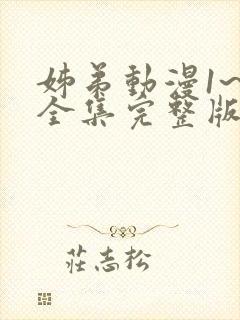 姊弟動漫1~
全集完整版
莊志松